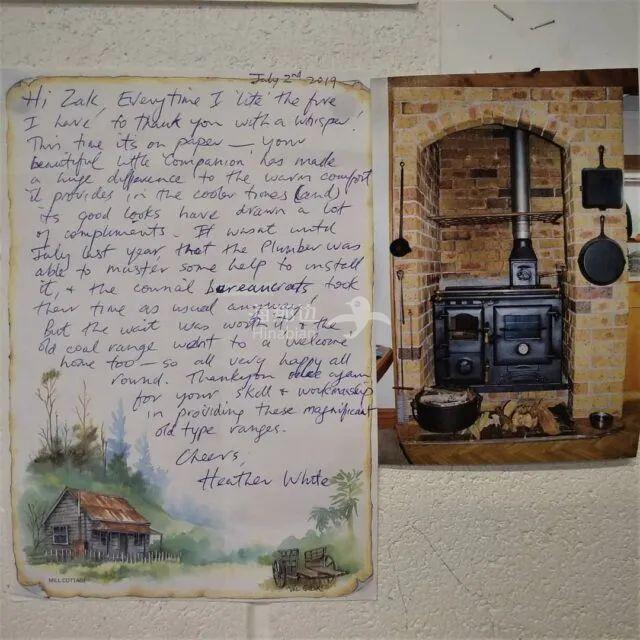 July 2nd 2019
Hi Zak, Everytime I lite the fire
I have to thank you with a whisper!
This time its on paper — your
beautiful little Companion has made
a huge difference to the warm comfort
it provides in the cooler times (and)
its good looks have drawn a lot
of compliments. It wasnt until
July last year, that the Plumber was
able to muster some help to install
it, & the council bereaucrats took
their time as usual anyway!
But the wait was worth it & the
old coal range went to a welcome
home too — so all very happy all
round. Thankyou once again
for your skill & workmanship
in providing these magnificant
old type ranges.
Cheers,
Heather White
MILL COTTAGE
海那边
Hinabian